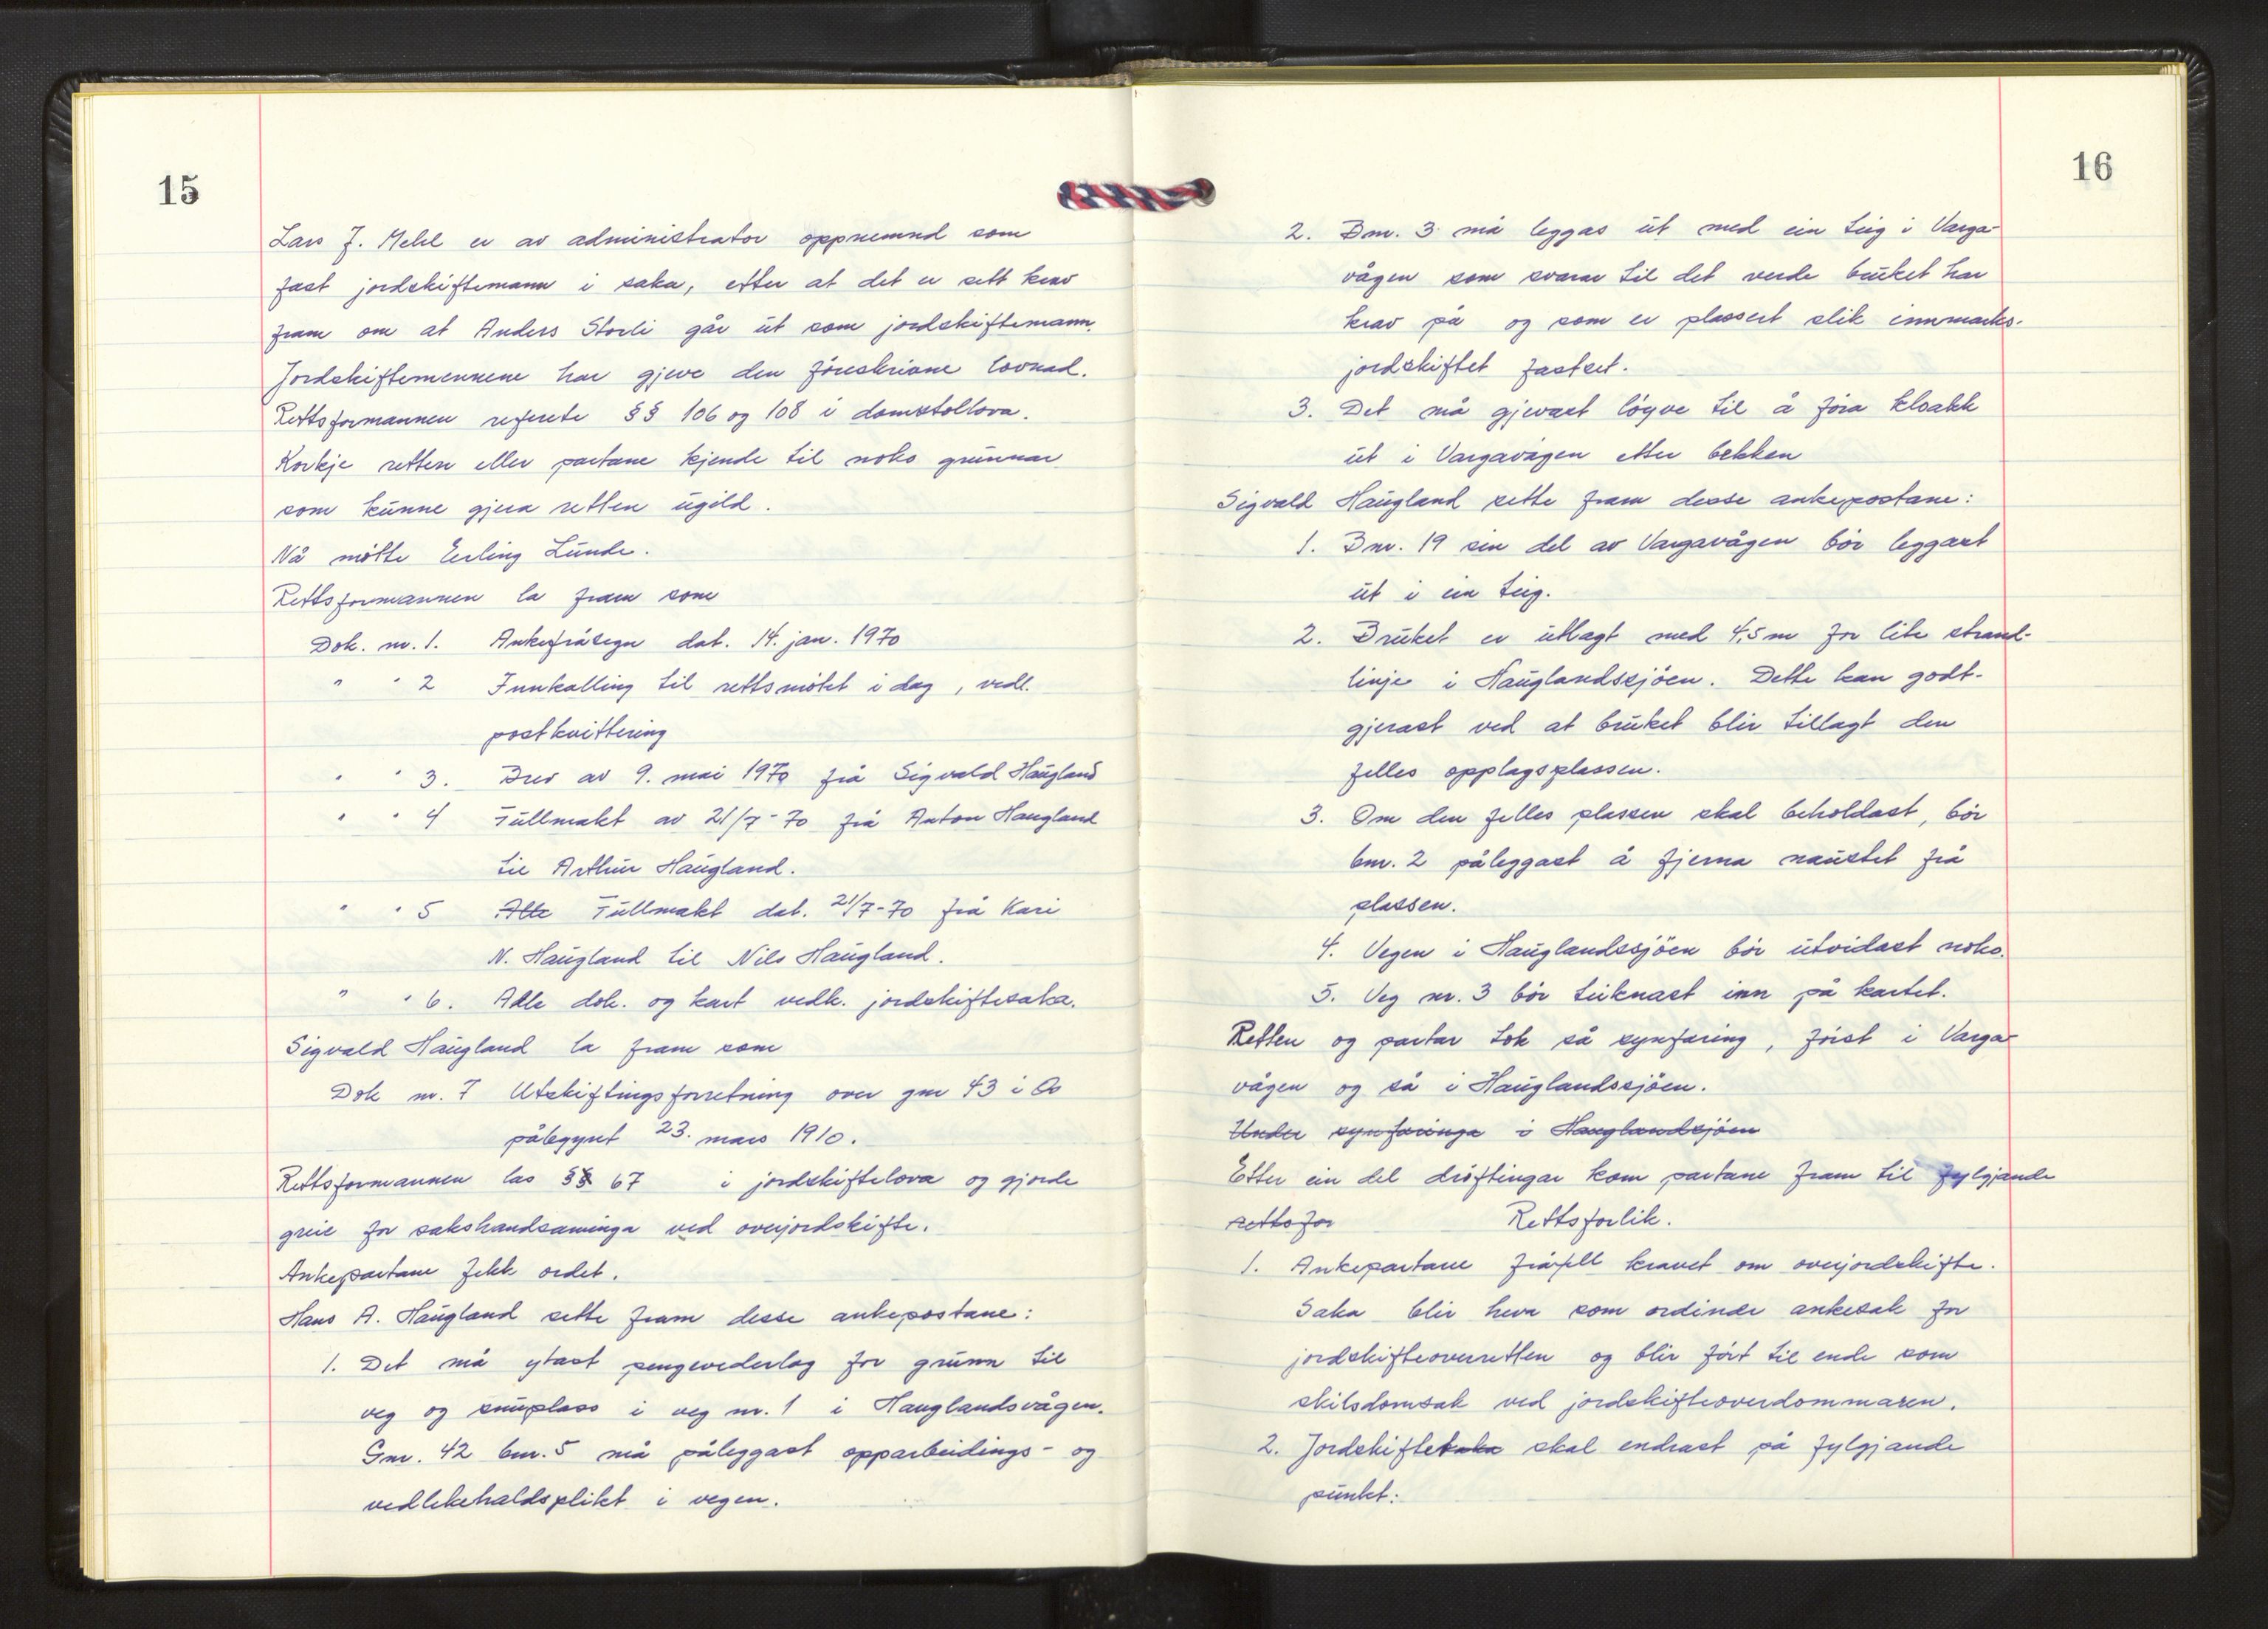 15
Lars J. Mehl er av administrator oppnemnd som
fast jordskiftemann i saka, etter at det er sett krav
fram om at Anders Storli går ut som jordskiftemann.
Jordskiftemennene har gjeve den föreskrivne lovnad.
Rettsformannen referete §§ 106 og 108 i domstollova.
Korkje retten eller partane kjende til noko grunnar
som kunne gjera retten ugild.
Nå mötte Erling Lunde.
Rettsformannen la fram som
Dok. nr. 1. Ankefråsegn dat. 14. jan. 1970
" " 2 Innkalling til rettsmötet i dag, vedl.
postkvittering
" " 3. Brev av 9. mai 1970 frå Sigvald Haugland
" " 4 Fullmakt av 21/7-70 frå Anton Haugland
til Arthur Haugland.
" " 5 Alle Fullmakt dat. 21/7-70 frå Kari
N. Haugland til Nils Haugland.
" " 6. Alle dok. og kart vedk. jordskiftesaka.
Sigvald Haugland la fram som
Dok nr. 7 Utskiftingsforretning over gnr 43 i Os
påbegynt 23. mars 1910.
Rettsformannen las §§ 67 i jordskiftelova og gjorde
greie for sakshandsaminga ved overjordskifte.
Ankepartane fekk ordet.
Hans A. Haugland sette fram desse ankepostane:
1. Det må ytast pengevederlag for grunn til
veg og snuplass i veg nr. 1 i Hauglandsvågen.
Gnr. 42 bnr. 5 må påleggast opparbeidings- og
vedlikehaldsplikt i vegen.
16
2. Bnr. 3 må leggas ut med ein teig i Varga-
vågen som svarar til det verde bruket har
krav på og som er plassert slik innmarks-
jordskiftet fastset.
3. Det må gjevast löyve til å föra kloakk
ut i Vargavågen etter bekken
Sigvald Haugland sette fram desse ankepostane:
1. Bnr. 19 sin del av Vargavågen bör leggast
ut i ein teig.
2. Bruket er utlagt med 4,5 m for lite strand-
linje i Hauglandssjöen. Dette kan godt-
gjerast ved at bruket blir tillagt den
felles opplagsplassen.
3. Om den felles plassen skal beholdast, bör
bnr. 2 påleggast å fjerna naustet frå
plassen.
4. Vegen i Hauglandssjöen bör utvidast noko.
5. Veg nr. 3 bör teiknast inn på kartet.
Retten og partar tok så synfaring, förist i Varga-
vågen og så i Hauglandssjöen.
Under synfaringa i Hauglandsjöen
Etter ein del dröftingar kom partane fram til fylgjande
rettsfor Rettsforlik.
1. Ankepartane fråfell kravet om overjordskifte.
Saka blir heva som ordinær ankesak for
jordskifteoverretten og blir fört til ende som
skilsdomsak ved jordskifteoverdommaren.
2. Jordskiftet skal endrast på fylgjande
punkt: